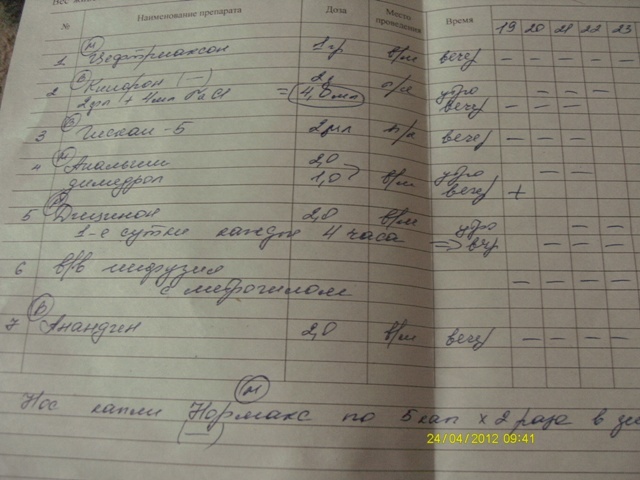 № Наименование препарата Доза Место проведения Время 19 20 21 22 23
М
1 Цефтриаксон 1 гр в/м вечер
В
2 (—) 2д
2 фл + 4 мл NaCl = 4,0 мл п/к утро
вечер
В
3 Гискан-5 2 мл п/к вечер
М
4 Анальгин 2,0
димедрол 1,0 в/м утро
вечер +
5 Дицинон 2,0 в/м утро
1-е сутки каждые 4 часа => веч
6 в/в инфузия
с метрогилом
В
7 Анандин 2,0 в/м вечер
М
Нос капли Нормакс по 5 кап х 2 раза в
(—)
24/04/2012 09:41